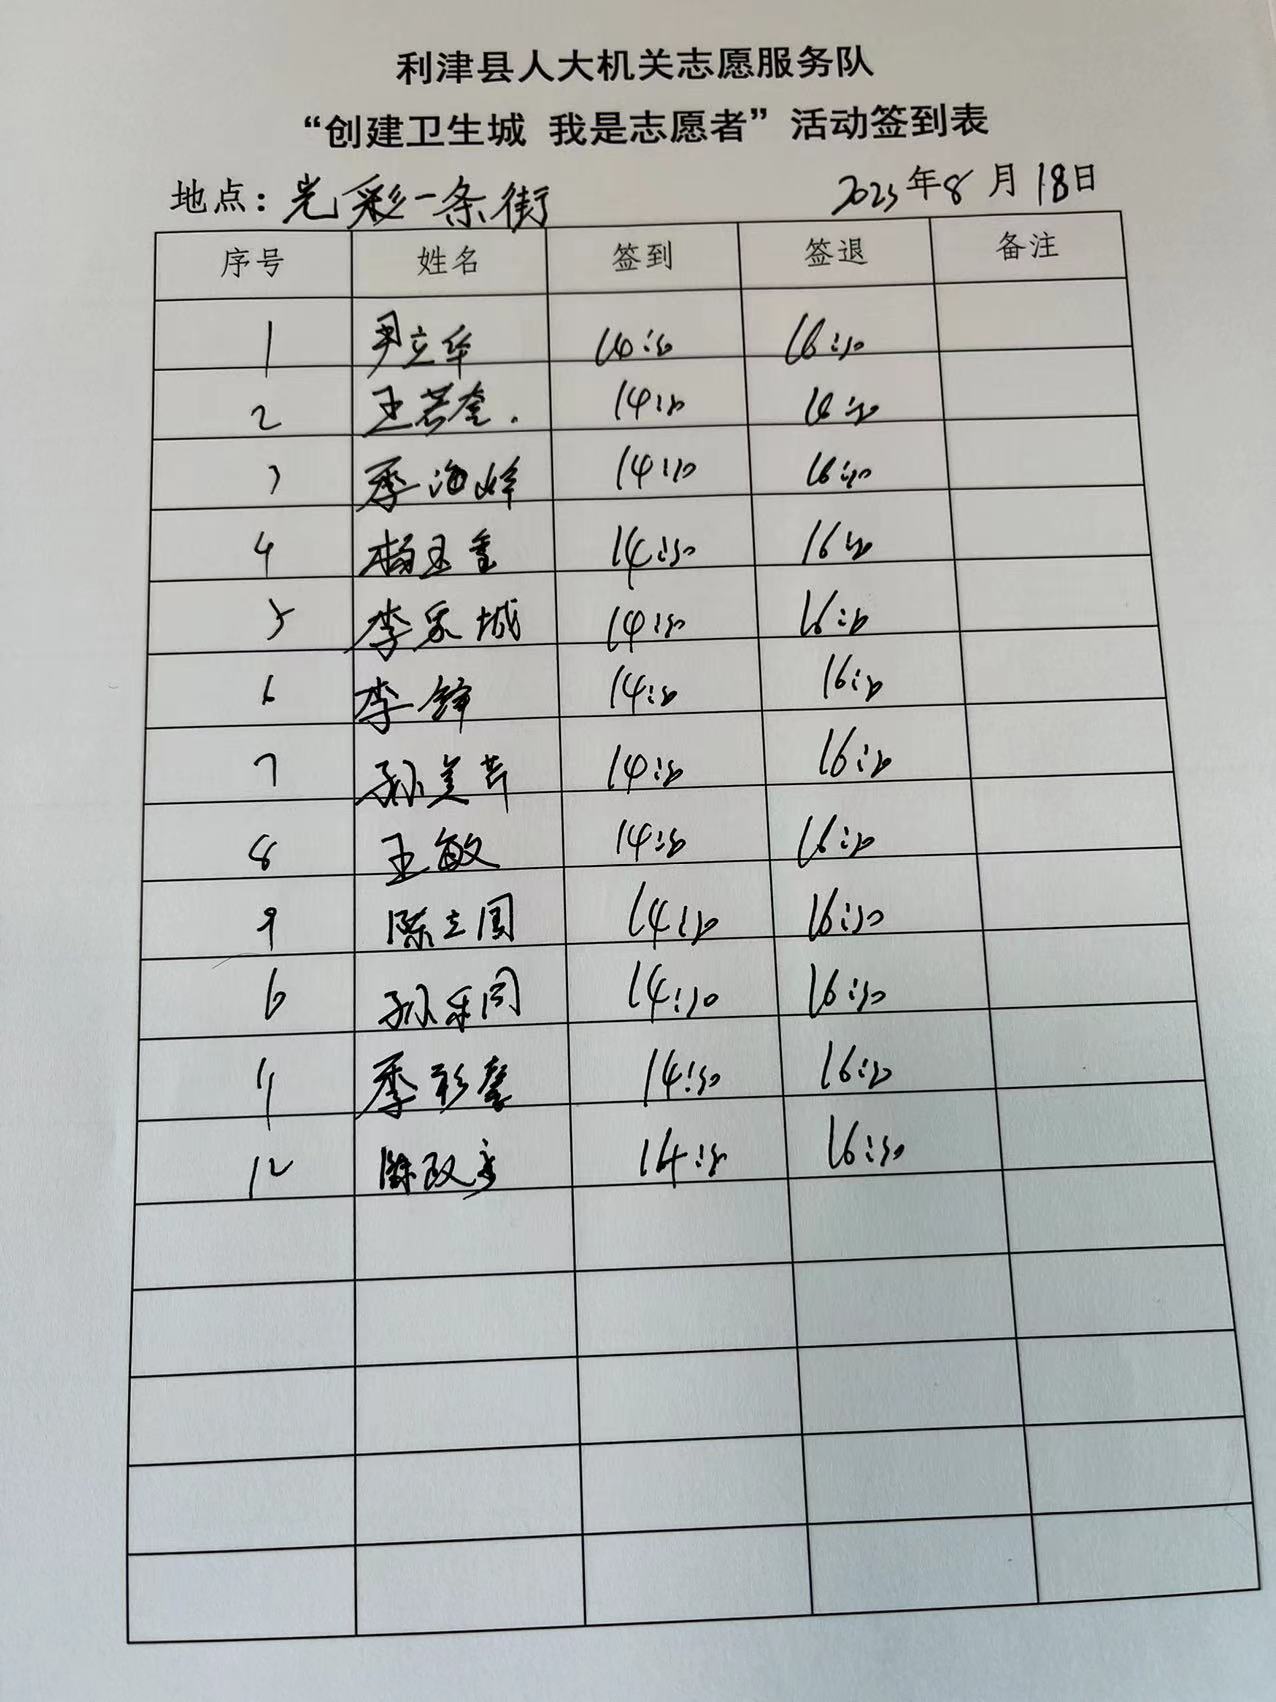 利津县人大机关志愿服务队
“创建卫生城 我是志愿者”活动签到表
地点：光彩一条街 2023年8月18日
序号 姓名 签到 签退 备注
1 尹立华 14:30 16:30
2 王若奎. 14:30 16:30
3 季海峰 14:30 16:30
4 杨玉重 14:30 16:30
5 李家城 14:30 16:30
6 李锋 14:30 16:30
7 孙美芹 14:30 16:30
8 王敏 14:30 16:30
9 陈立国 14:30 16:30
10 孙乐同 14:30 16:30
11 季彩馨 14:30 16:30
12 陈政 14:30 16:30